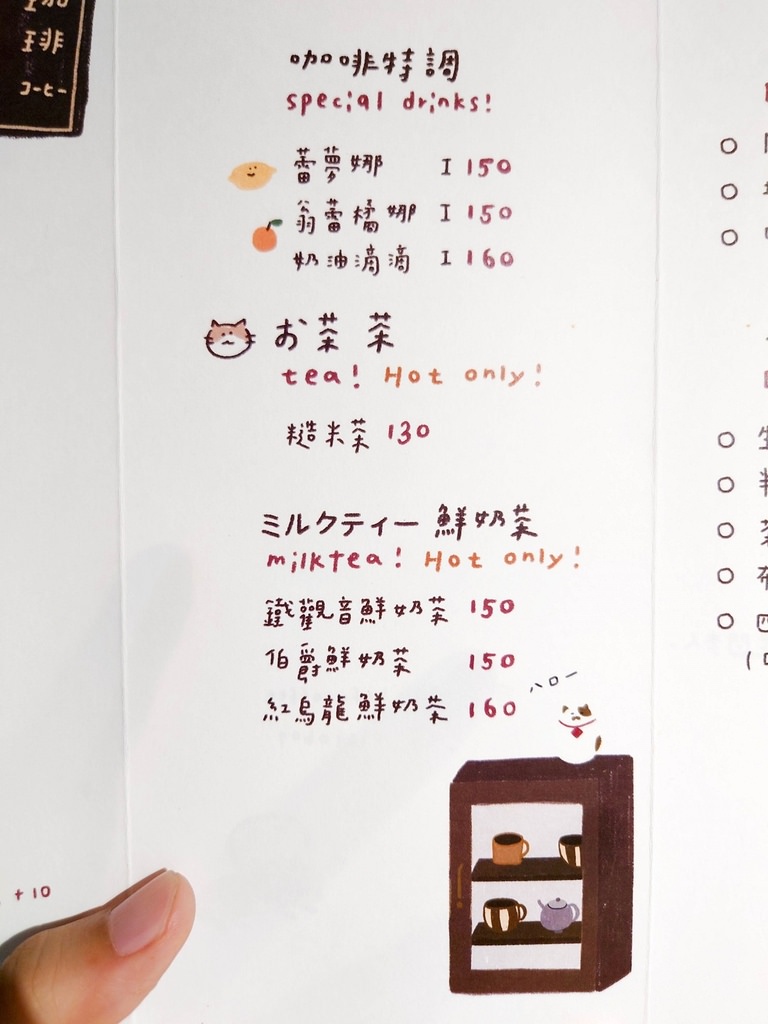 咖啡
コーヒー
咖啡特調
special drinks!
蕾夢娜 I 150
翁蕾橘娜 I 150
奶油滴滴 I 160
お茶 茶
tea! Hot only!
糙米茶 130
ミルクティー 鮮奶茶
milktea! Hot only!
鐵觀音鮮奶茶 150
伯爵鮮奶茶 150
紅烏龍鮮奶茶 160
ハロー
+10